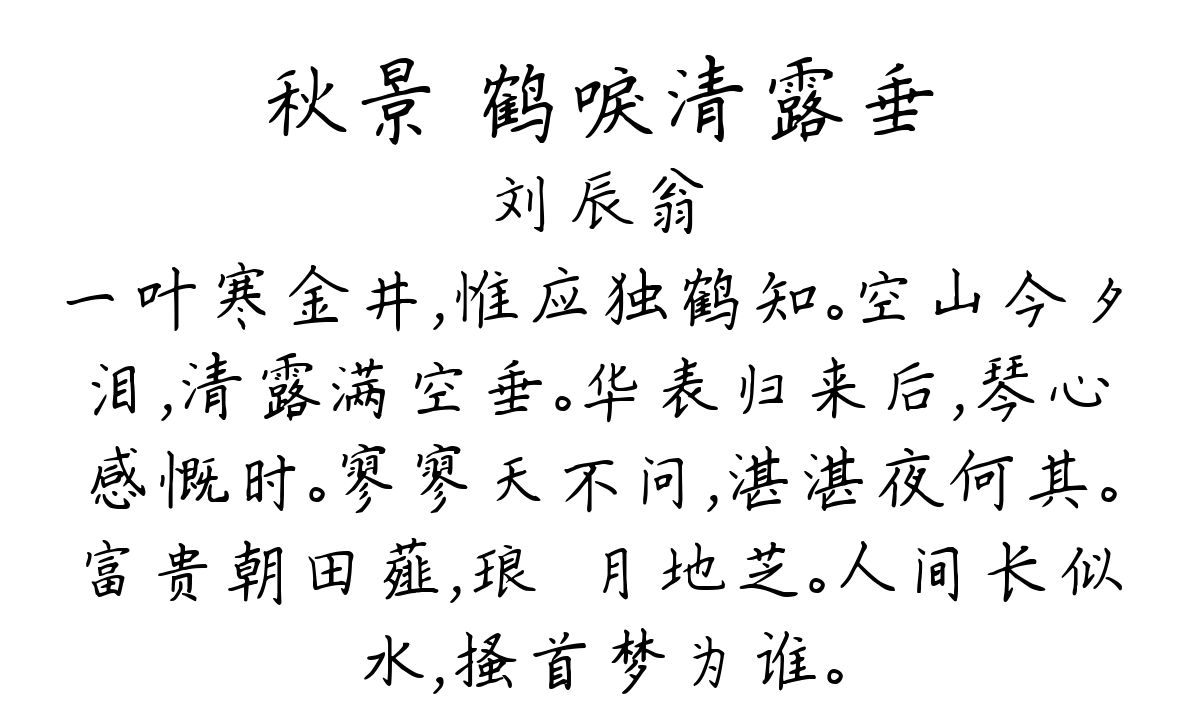 秋景 鹤唳清露垂
刘辰翁
一叶寒金井,惟应独鹤知。空山今夕
泪,清露满空垂。华表归来后,琴心
感慨时。寥寥天不问,湛湛夜何其。
富贵朝田薤,琅 月地芝。人间长似
水,搔首梦为谁。